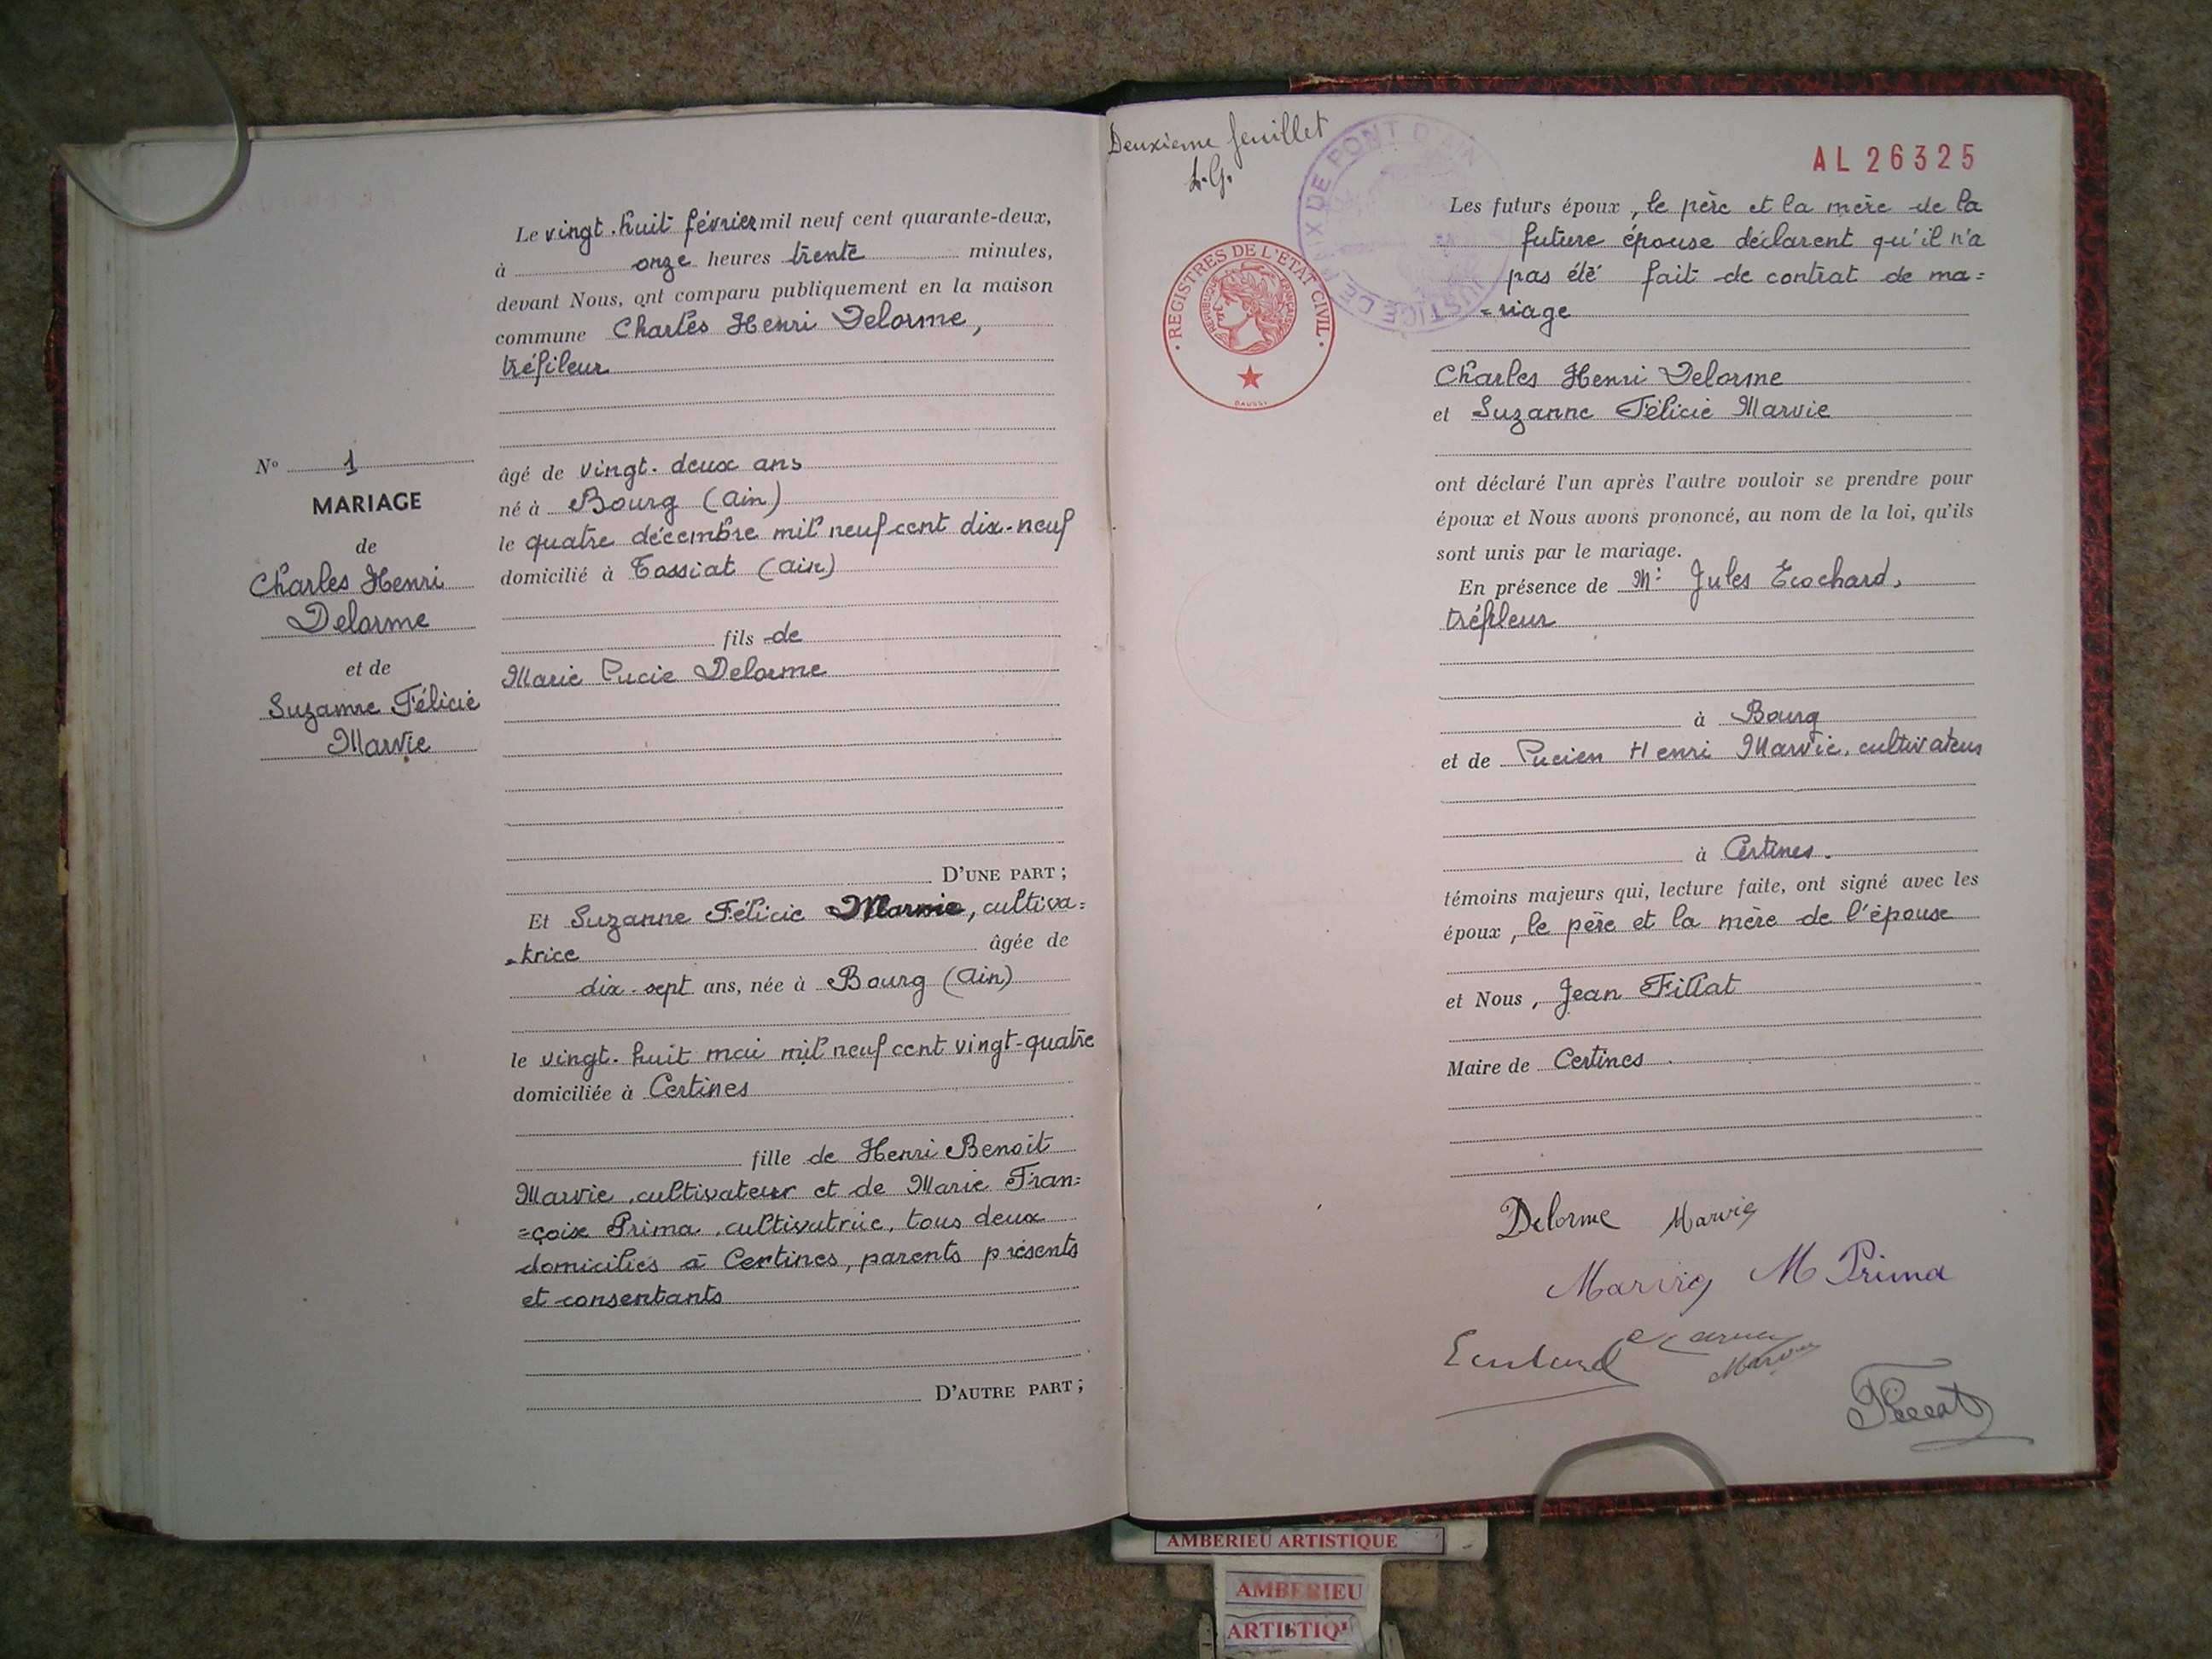 Le vingt-huit février mil neuf cent quarante-deux,
à onze heures trente minutes,
devant Nous, ont comparu publiquement en la maison
commune Charles Henri Delorme,
tréfileur
N° 1
MARIAGE
de
Charles Henri
Delorme
et de
Suzanne Félicie
Marvie
âgé de vingt-deux ans
né à Bourg (Ain)
le quatre décembre mil neuf cent dix-neuf
domicilié à Tossiat (Ain)
fils de
Marie Lucie Delorme
D'UNE PART ;
Et Suzanne Félicie Marvie, cultiva=
=trice âgée de
dix-sept ans, née à Bourg (Ain)
le vingt-huit mai mil neuf cent vingt-quatre
domiciliée à Certines
fille de Henri Benoit
Marvie, cultivateur et de Marie Fran=
=çoise Prima, cultivatrice, tous deux
domiciliés à Certines, parents présents
et consentants
D'AUTRE PART ;
Deuxième feuillet
L.G.
JUSTICE DE PAIX DE PONT D'AIN
AL 26325
REGISTRES DE L'ETAT CIVIL
REPUBLIQUE FRANÇAISE
Les futurs époux, le père et la mère de la
future épouse déclarent qu'il n'a
pas été fait de contrat de ma=
=riage
Charles Henri Delorme
et Suzanne Félicie Marvie
ont déclaré l'un après l'autre vouloir se prendre pour
époux et Nous avons prononcé, au nom de la loi, qu'ils
sont unis par le mariage.
En présence de Mr Jules Ecochard,
tréfileur
à Bourg
et de Lucien Henri Marvie, cultivateur
à Certines.
témoins majeurs qui, lecture faite, ont signé avec les
époux, le père et la mère de l'épouse
et Nous, Jean Fillat
Maire de Certines.
Delorme Marvie
Marvie M Prima
Marvie
AMBERIEU ARTISTIQUE
AMBERIEU
ARTISTIQU